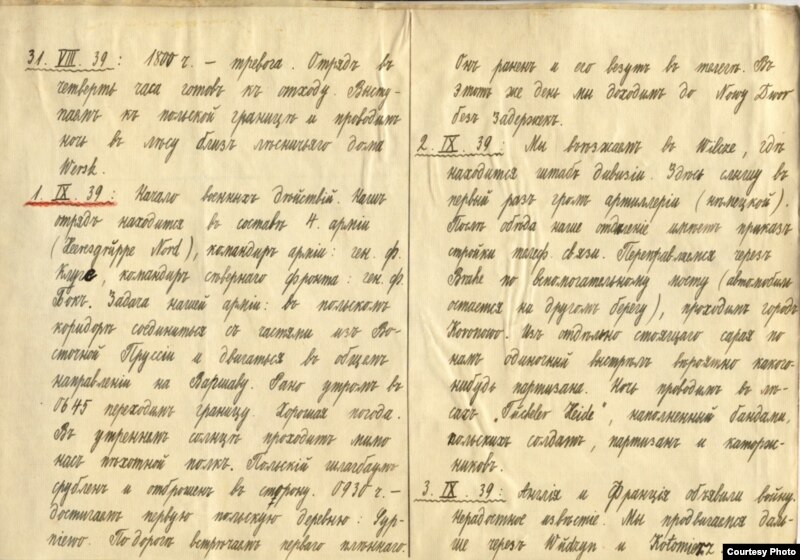 31. VIII. 39: 1800 ч. – тревога. Отрядъ въ
четверть часа готовъ къ отходу. Высту-
паемъ къ польской границѣ и проводимъ
ночь въ лѣсу близъ лѣсничьяго дома
Wersk.
1. IX. 39: Начало военныхъ дѣйствій. Нашъ
отрядъ находится въ составѣ 4. арміи
(Heeresgruppe Nord), командиръ арміи: ген. ф.
Клуге, командиръ сѣвернаго фронта: ген. ф.
Бокъ. Задача нашей арміи: въ польскомъ
коридорѣ соединиться съ частями изъ Во-
сточной Пруссіи и двигаться въ общемъ
направленіи на Варшаву. Рано утромъ въ
0645 переходимъ границу. Хорошая погода.
Въ утреннемъ солнцѣ проходитъ мимо
насъ пѣхотной полкъ. Польскій шлагбаумъ
срубленъ и отброшенъ въ сторону. 0930 ч. –
достигаемъ первую польскую деревню: Syp-
niewo. По дорогѣ встрѣчаемъ перваго плѣннаго.
Онъ раненъ и его везутъ въ телегѣ. Въ
этотъ же день мы доходимъ до Nowy Dwor
безъ задержекъ.
2. IX. 39: Мы въезжаемъ въ Wilcze, гдѣ
находится штабъ дивизіи. Здѣсь слышу въ
первый разъ громъ артиллеріи (нѣмецкой).
Послѣ обѣда наше отдѣленіе имѣетъ приказъ
стройки телеф. связи. Переправляемся черезъ
Brahe по вспомогательному мосту (автомобиль
остается на другомъ берегу), проходимъ городъ
Koronowo. Изъ отдѣльно стоящаго сарая по
намъ одиночный выстрѣлъ вѣроятно какого-
нибудь партизана. Ночь проводимъ въ лѣ-
сахъ „Tucheler Heide", наполненный бандами,
польскихъ солдатъ, партизанъ и каторж-
никовъ.
3. IX. 39: Англія и Франція объявили войну.
Нерадостное извѣстіе. Мы продвигаемся даль-
ше черезъ Wudzyn и
Courtesy Photo